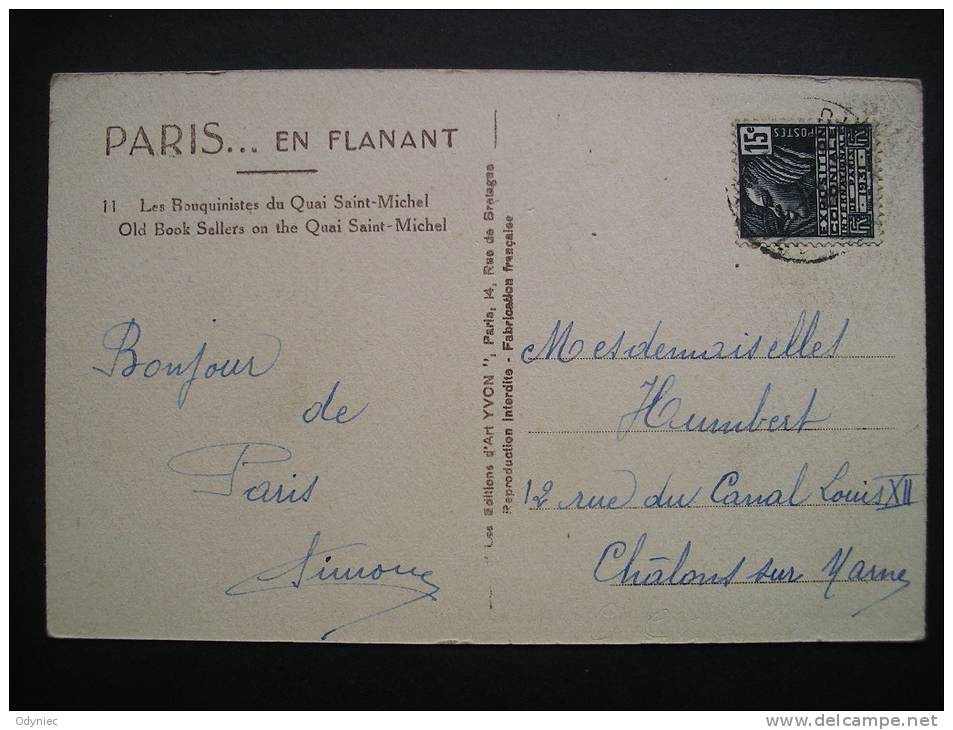 PARIS... EN FLANANT
11 Les Bouquinistes du Quai Saint-Michel
Old Book Sellers on the Quai Saint-Michel
Bonjour
de
Paris
Simone
" Les Editions d'Art YVON ", Paris, 14, Rue de Bretagne
Reproduction interdite - Fabrication française
15c
POSTES
EXPOSITION
COLONIALE
INTERNATIONALE
PARIS
1931
Mesdemoiselles
Humbert
12 rue du Canal Louis XII
Châlons sur Marne
Odyniec
delcampe.net